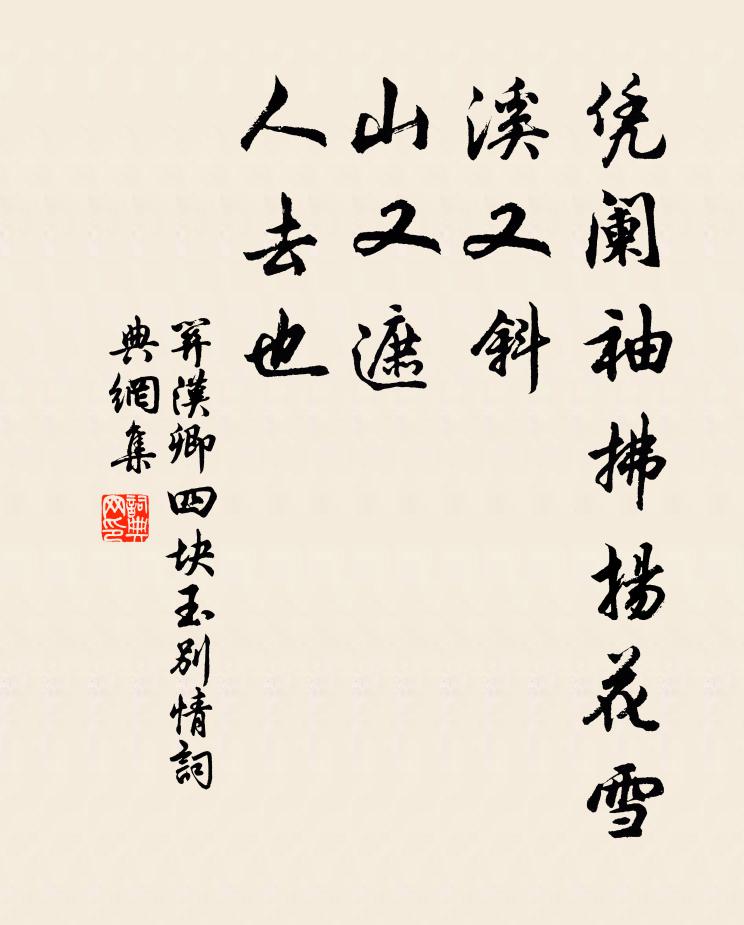 凭阑袖拂揚花雪
溪又斜
山又遮
人去也
关漢卿四块玉别情詞
典網集
詞典
网印